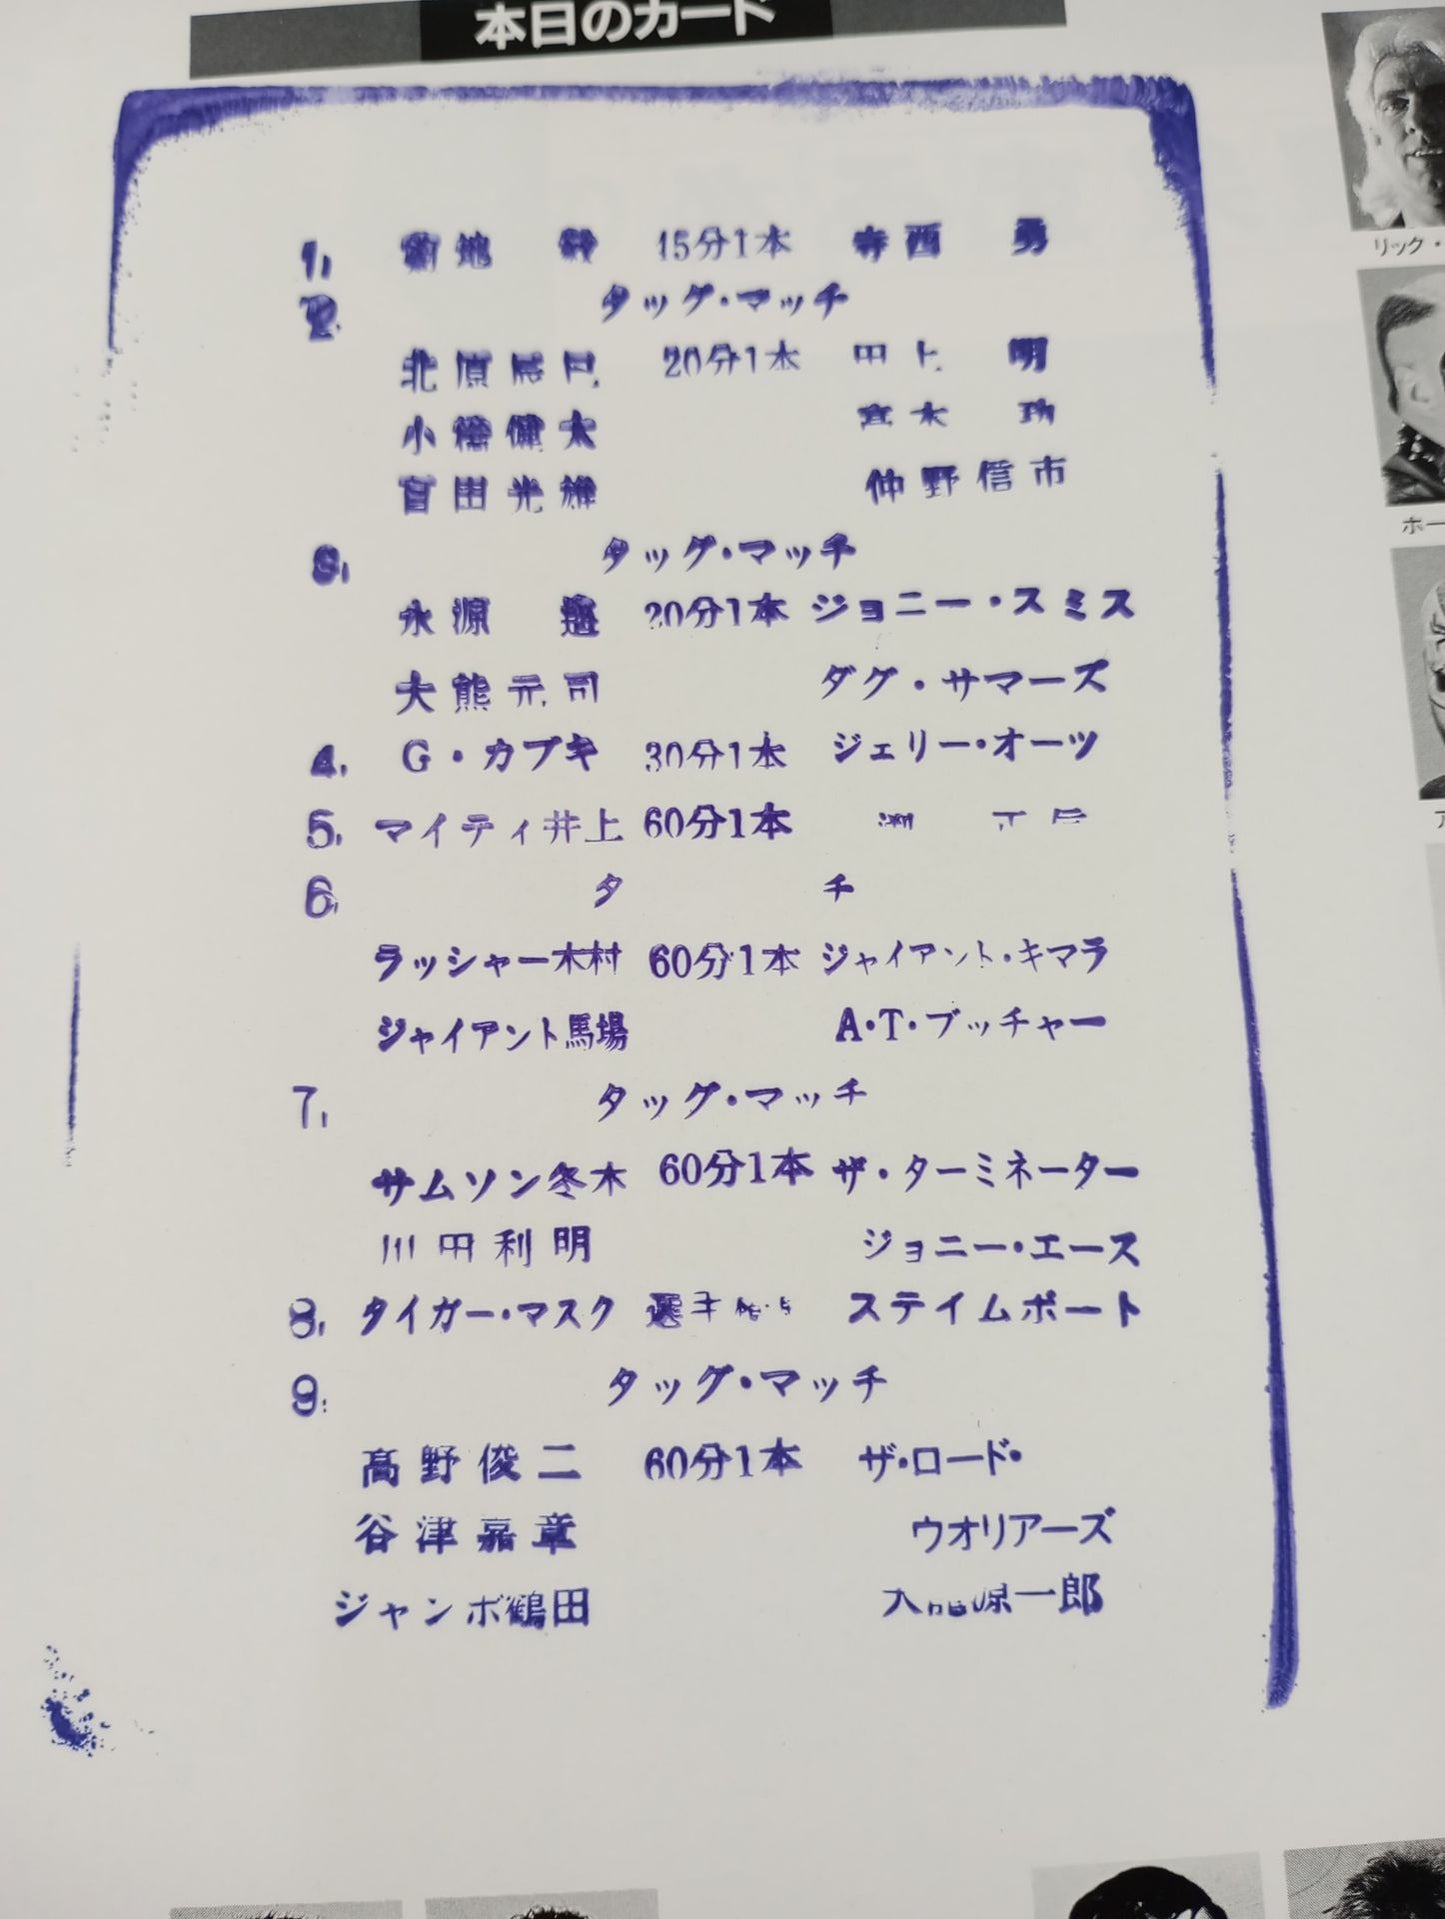 本日のカード
1. 菊地 毅 15分1本 寺西 勇
2. タッグ・マッチ
北原辰巳 20分1本 田上 明
小橋健太 高木 功
百田光雄 仲野信市
3. タッグ・マッチ
永源 遙 20分1本 ジョニー・スミス
大熊元司 ダグ・サマーズ
4. G・カブキ 30分1本 ジェリー・オーツ
5. マイティ井上 60分1本
6. タ チ
ラッシャー木村 60分1本 ジャイアント・キマラ
ジャイアント馬場 A・T・ブッチャー
7. タッグ・マッチ
サムソン冬木 60分1本 ザ・ターミネーター
川田利明 ジョニー・エース
8. タイガー・マスク 選手 ステイムボート
9. タッグ・マッチ
高野俊二 60分1本 ザ・ロード・
谷津嘉章 ウオリアーズ
ジャンボ鶴田 天龍源一郎
リック・
ホー